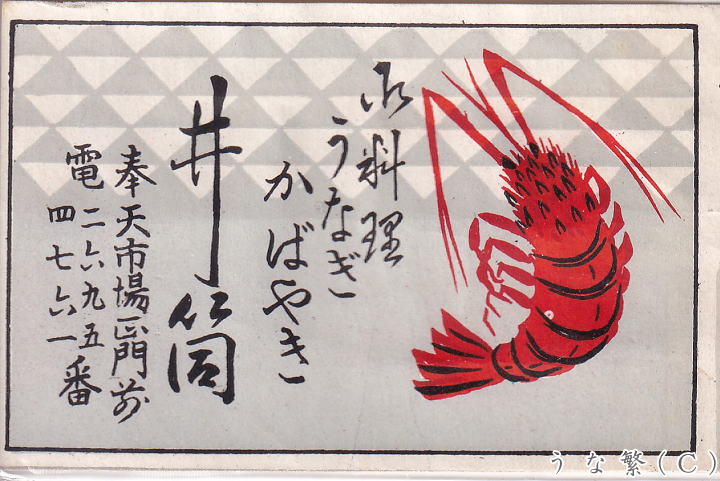 御料理
うなぎ
かばやき
井筒
奉天市場正門前
電二六九五番
四七六一
うな繁(C)